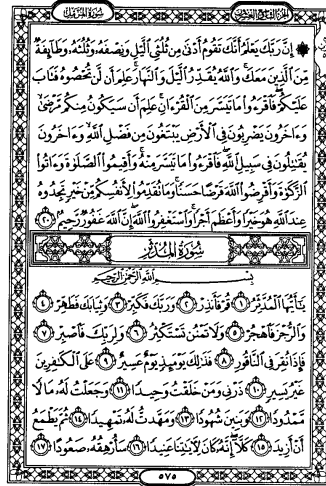 الجزء التاسع والعشرون سورة المزمل
۞ إِنَّ رَبَّكَ يَعْلَمُ أَنَّكَ تَقُومُ أَدْنَىٰ مِن ثُلُثَيِ ٱلَّيْلِ وَنِصْفَهُۥ وَثُلُثَهُۥ وَطَآئِفَةٌ
مِّنَ ٱلَّذِينَ مَعَكَۚ وَٱللَّهُ يُقَدِّرُ ٱلَّيْلَ وَٱلنَّهَارَۚ عَلِمَ أَن لَّن تُحْصُوهُ فَتَابَ
عَلَيْكُمْۖ فَٱقْرَءُوا۟ مَا تَيَسَّرَ مِنَ ٱلْقُرْءَانِۚ عَلِمَ أَن سَيَكُونُ مِنكُم مَّرْضَىٰ
وَءَاخَرُونَ يَضْرِبُونَ فِى ٱلْأَرْضِ يَبْتَغُونَ مِن فَضْلِ ٱللَّهِۙ وَءَاخَرُونَ
يُقَٰتِلُونَ فِى سَبِيلِ ٱللَّهِۖ فَٱقْرَءُوا۟ مَا تَيَسَّرَ مِنْهُۚ وَأَقِيمُوا۟ ٱلصَّلَوٰةَ وَءَاتُوا۟
ٱلزَّكَوٰةَ وَأَقْرِضُوا۟ ٱللَّهَ قَرْضًا حَسَنًاۚ وَمَا تُقَدِّمُوا۟ لِأَنفُسِكُم مِّنْ خَيْرٍ تَجِدُوهُ
عِندَ ٱللَّهِ هُوَ خَيْرًا وَأَعْظَمَ أَجْرًاۚ وَٱسْتَغْفِرُوا۟ ٱللَّهَۖ إِنَّ ٱللَّهَ غَفُورٌ رَّحِيمٌۢ ٢٠
سُورَةُ المُدَّثِّر
بِسْمِ ٱللَّهِ ٱلرَّحْمَٰنِ ٱلرَّحِيمِ
يَٰٓأَيُّهَا ٱلْمُدَّثِّرُ ١ قُمْ فَأَنذِرْ ٢ وَرَبَّكَ فَكَبِّرْ ٣ وَثِيَابَكَ فَطَهِّرْ ٤
وَٱلرُّجْزَ فَٱهْجُرْ ٥ وَلَا تَمْنُن تَسْتَكْثِرُ ٦ وَلِرَبِّكَ فَٱصْبِرْ ٧
فَإِذَا نُقِرَ فِى ٱلنَّاقُورِ ٨ فَذَٰلِكَ يَوْمَئِذٍ يَوْمٌ عَسِيرٌ ٩ عَلَى ٱلْكَٰفِرِينَ
غَيْرُ يَسِيرٍ ١٠ ذَرْنِى وَمَنْ خَلَقْتُ وَحِيدًا ١١ وَجَعَلْتُ لَهُۥ مَالًا
مَّمْدُودًا ١٢ وَبَنِينَ شُهُودًا ١٣ وَمَهَّدتُّ لَهُۥ تَمْهِيدًا ١٤ ثُمَّ يَطْمَعُ
أَنْ أَزِيدَ ١٥ كَلَّآۖ إِنَّهُۥ كَانَ لِءَايَٰتِنَا عَنِيدًا ١٦ سَأُرْهِقُهُۥ صَعُودًا ١٧
٥٧٥